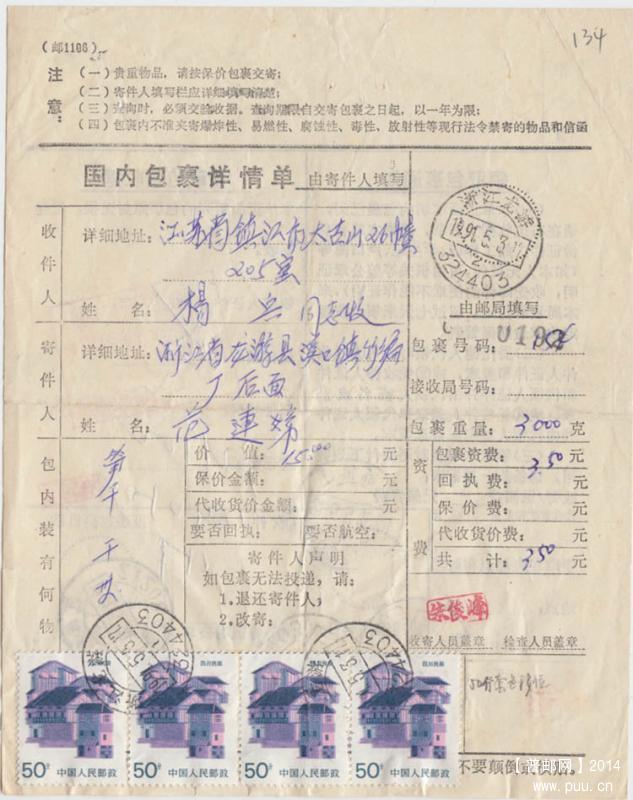 134
(邮1106)
注意：
(一)贵重物品，请按保价包裹交寄；
(二)寄件人填写栏应详细填写清楚；
(三)查询时，必须交验收据。查询期限自交寄包裹之日起，以一年为限；
(四)包裹内不准夹寄爆炸性、易燃性、腐蚀性、毒性、放射性等现行法令禁寄的物品和信函
国内包裹详情单 由寄件人填写
浙江龙游
1991.5.3
324403
收件人
详细地址：江苏省镇江市太古山26幢
205室
姓名：杨 同志收
由邮局填写
寄件人
详细地址：浙江省龙游县溪口镇
厂后面
姓名：范莲娣
包裹号码：
接收局号码：
包裹重量：3000克
包内装有何物
笋干
价值：15.00元
保价金额：元
代收货价金额：元
要否回执： 要否航空：
资费
包裹资费：3.50元
回执费：元
保价费：元
代收货价费：元
共计：3.50元
寄件人声明
如包裹无法投递，请：
1.退还寄件人；
2.改寄：
收寄人员盖章 检查人员盖章
四川民居
50分 中国人民邮政
四川民居
50分 中国人民邮政
四川民居
50分 中国人民邮政
四川民居
50分 中国人民邮政
不要颠倒
【普邮网】2014
www.puu.cn